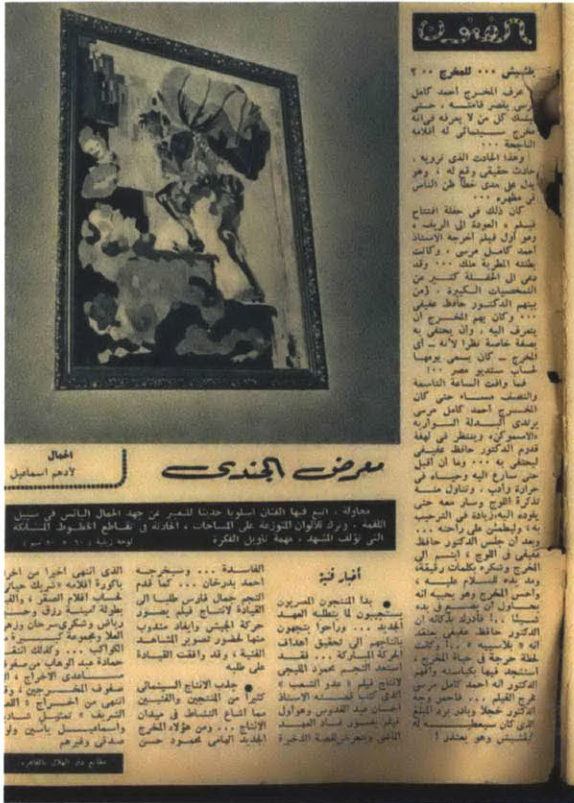 الفنون
بقشيش ... للمخرج .. ؟
عرف المخرج أحمد كامل
مرسى بقصر قامته ، حتى
يشك كل من لا يعرفه فى انه
مخرج سينمائى له أفلامه
الناجحة ...
وهذا الحادث الذى نرويه ،
حادث حقيقى وقع له ، وهو
يدل على مدى خطأ ظن الناس
فى مظهره ...
كان ذلك فى حفلة افتتاح
فيلم « العودة الى الريف »
وهو أول فيلم أخرجه الاستاذ
أحمد كامل مرسى ، وكانت
بطلته المطربة ملك ... وقد
دعى الى الحفلة كثير من
الشخصيات الكبيرة ، من
بينهم الدكتور حافظ عفيفى
... وكان يهم المخرج أن
يتعرف اليه ، وأن يحتفى به
بصفة خاصة نظرا لأنه ـ أى
المخرج ـ كان يسعى يومها
لحساب ستديو مصر ..!
فما وافت الساعة التاسعة
والنصف مساء حتى كان
المخرج أحمد كامل مرسى
يرتدى البدلة السواريه
«الاسموكن» وينتظر فى لهفة
قدوم الدكتور حافظ عفيفى
ليحتفى به ... وما أن أقبل
حتى سارع اليه وحياه فى
حرارة وأدب ، وتناول منه
تذكرة اللوج وسار معه حتى
يقوده اليه زيادة فى الترحيب
به ، وليطمئن على راحته ...
وبعد أن جلس الدكتور حافظ
عفيفى فى اللوج ، ابتسم الى
المخرج وشكره بكلمات رقيقة،
ومد يده للسلام عليه ،
وأحس المخرج وهو يحييه انه
يحاول أن يضع فى يده
شيئا ..! فأدرك بذكائه ان
الدكتور حافظ عفيفى يعتقد
انه « بلاسيير » ..! وكانت
لحظة حرجة فى حياة المخرج ،
استنجد فيها بكياسته وأفهم
الدكتور انه أحمد كامل مرسى
مخرج الفيلم ... فاحمر وجه
الدكتور خجلا وبادر برد المبلغ
الذى كان سيعطيه له
كبقشيش وهو يعتذر !
معرض الجندى
الحمال
لأدهم اسماعيل
محاولة ، اتبع فيها الفنان اسلوبا حديثا للتعبير عن جهد الحمال البائس فى سبيل
اللقمة . وترك للألوان الموزعة على المساحات ، الحادثة فى تقاطع الخطوط المتشابكة
التى تؤلف المشهد ، مهمة تأويل الفكرة
أخبار فنية
● بدأ المنتجون المصريون
يستجيبون لما يتطلبه العهد
الجديد ... وراحوا يتجهون
بانتاجهم الى تحقيق أهداف
الحركة المباركة ... فقد
استعد النجم محمود المليجى
لانتاج فيلم « عدو الشعب »
الذى كتب قصته الاستاذ
احسان عبد القدوس وهو أول
فيلم يصور فساد العهد
الماضى ويتعرض لقصة الذخيرة
الفاسدة ... وسيخرجه
أحمد بدرخان ... كما قدم
النجم جمال فارس طلبا الى
القيادة لانتاج فيلم يصور
حركة الجيش وايفاد مندوب
منها لحضور تصوير المشاهد
الفنية ، وقد وافقت القيادة
على طلبه
● جذب الانتاج السينمائى
كثيرا من المنتجين والفنيين
مما أشاع النشاط فى ميدان
الانتاج ... ومن هؤلاء المخرج
الجديد الهامى محمود حسن
الذى انتهى أخيرا من
باكورة أفلامه «شريك حياتى»
لحساب أفلام الصقر ،
بطولة أمينة رزق
رياض وشكرى سرحان
العلا ومجموعة كبيرة
الكواكب ... وكذلك
حمادة عبد الوهاب من
مساعدى الاخراج ،
صفوف المخرجين ،
انتهى من اخراج «
الشريف » تمثيل
واسماعيل ياسين
صدقى وغيرهم
مطابع دار الهلال بالقاهرة